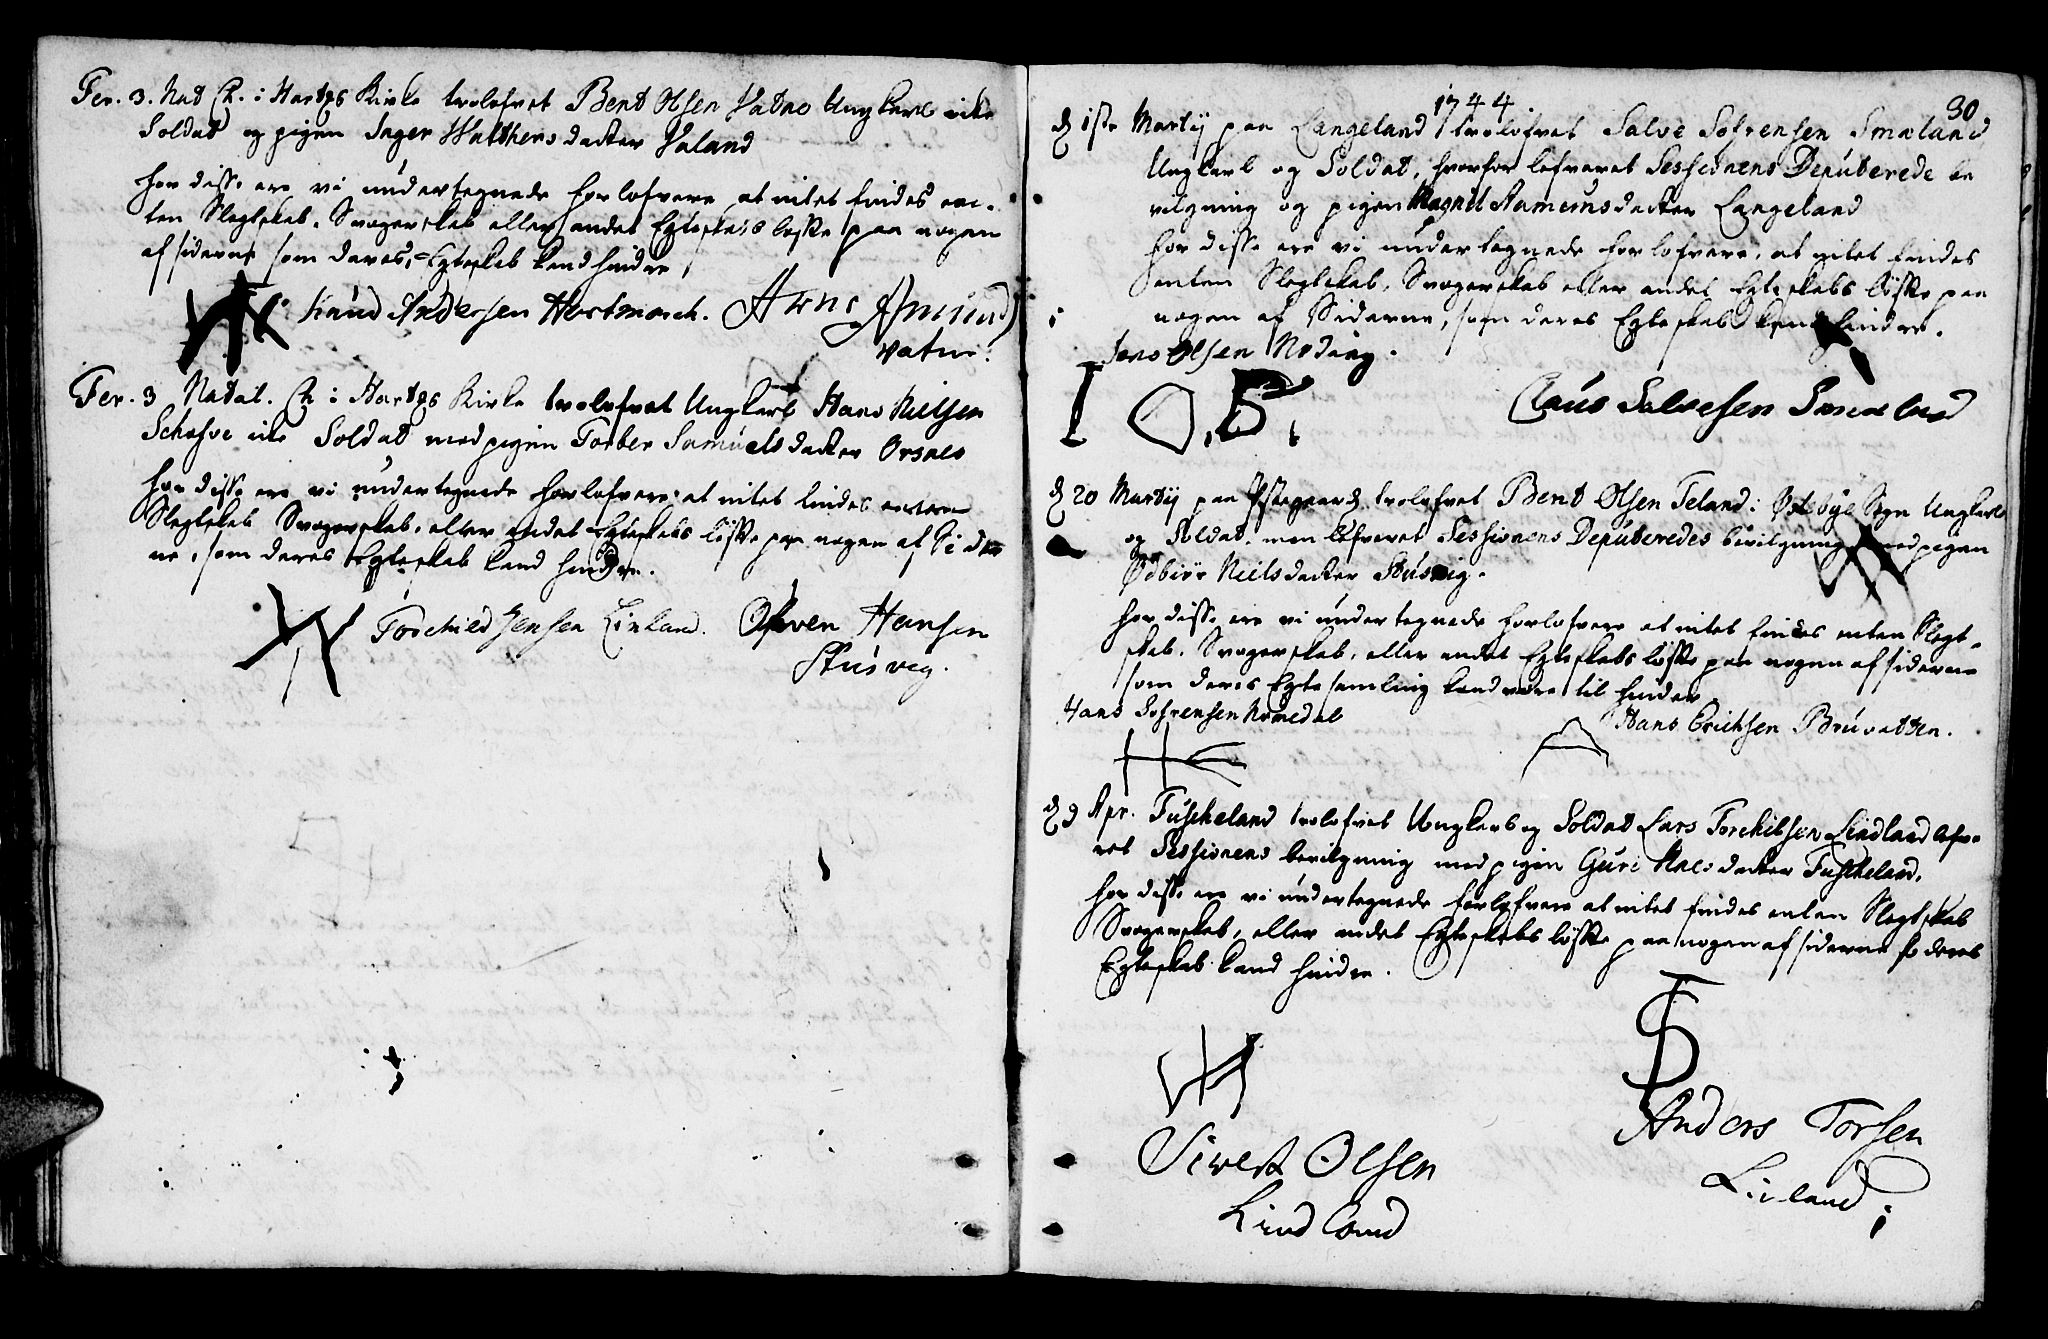 Fer. 3. Nat Ch. i Hartgs Kirke trolofvet Bent Olsen Vatne Ungkarl icke
Soldat og pigen Inger Matthersdatter Valand
for disse ere vi undertegnede forlofvere at intet findes en-
ten Slegtskab, Svogerskab eller andet Egteskabs løfte paa nogen
af siderne som deres Egteskab kand hindre
Knud Andersen Hortmarch. Arne Amund
Vatne.
Fer. 3 Natal. Ch i Hartgs Kirke trolofvet Ungkarl Hans Nielsen
icke Soldat med pigen Torber Samuels datter
for disse ere vi undertegnede forlofvere at intet findes enten
Slegtskab Svogerskab, eller andet Egteskabs løfte paa nogen af Sider
ne, som deres Egteskab kand hindre.
Torchild Jensen Linland. Hansen
Stusvig.
1744
30
d 1ste Martij paa Langeland trolofvet Salve Sofrensen Smaland
Ungkarl og Soldat, hvorfor lefveret Sessionens Deputerede be
vilgning og pigen datter Langeland
for disse ere vi undertegnede forlofvere, at intet findes
enten Slegtskab, Svogerskab eller andet Egteskabs løfte paa
nogen af Siderne, som deres Egteskab kand hindre.
Jens Olsen Røding.
I O. B.
Claus Salvesen Smaaland
d 20 Martij paa trolofvet Bent Olsen Teland i Sogn Ungkarl
og Soldat, men lefveret Sessionens Deputeredes bevilgning med pigen
Niels datter Stusvig.
for disse ere vi undertegnede forlofvere at intet findes enten Slegt-
skab, Svogerskab, eller andet Egteskabs løfte paa nogen af siderne
som deres Egte samling kand være til hinder
Hans Sofrensen Homedal
Hans Erichsen Bruvatten.
d 9 Apr. Tuscheland trolofvet Ungkarl og Soldat Lars Torchilsen Lindland lefve-
ret Sessionens bevilgning med pigen Guri datter Tuscheland.
for disse ere vi undertegnede forlofvere at intet findes enten Slegtskab
Svogerskab, eller andet Egteskabs løfte paa nogen af siderne so deres
Egteskab kand hindre.
Sivert Olsen
Lindland
Anders Torsen
Linland